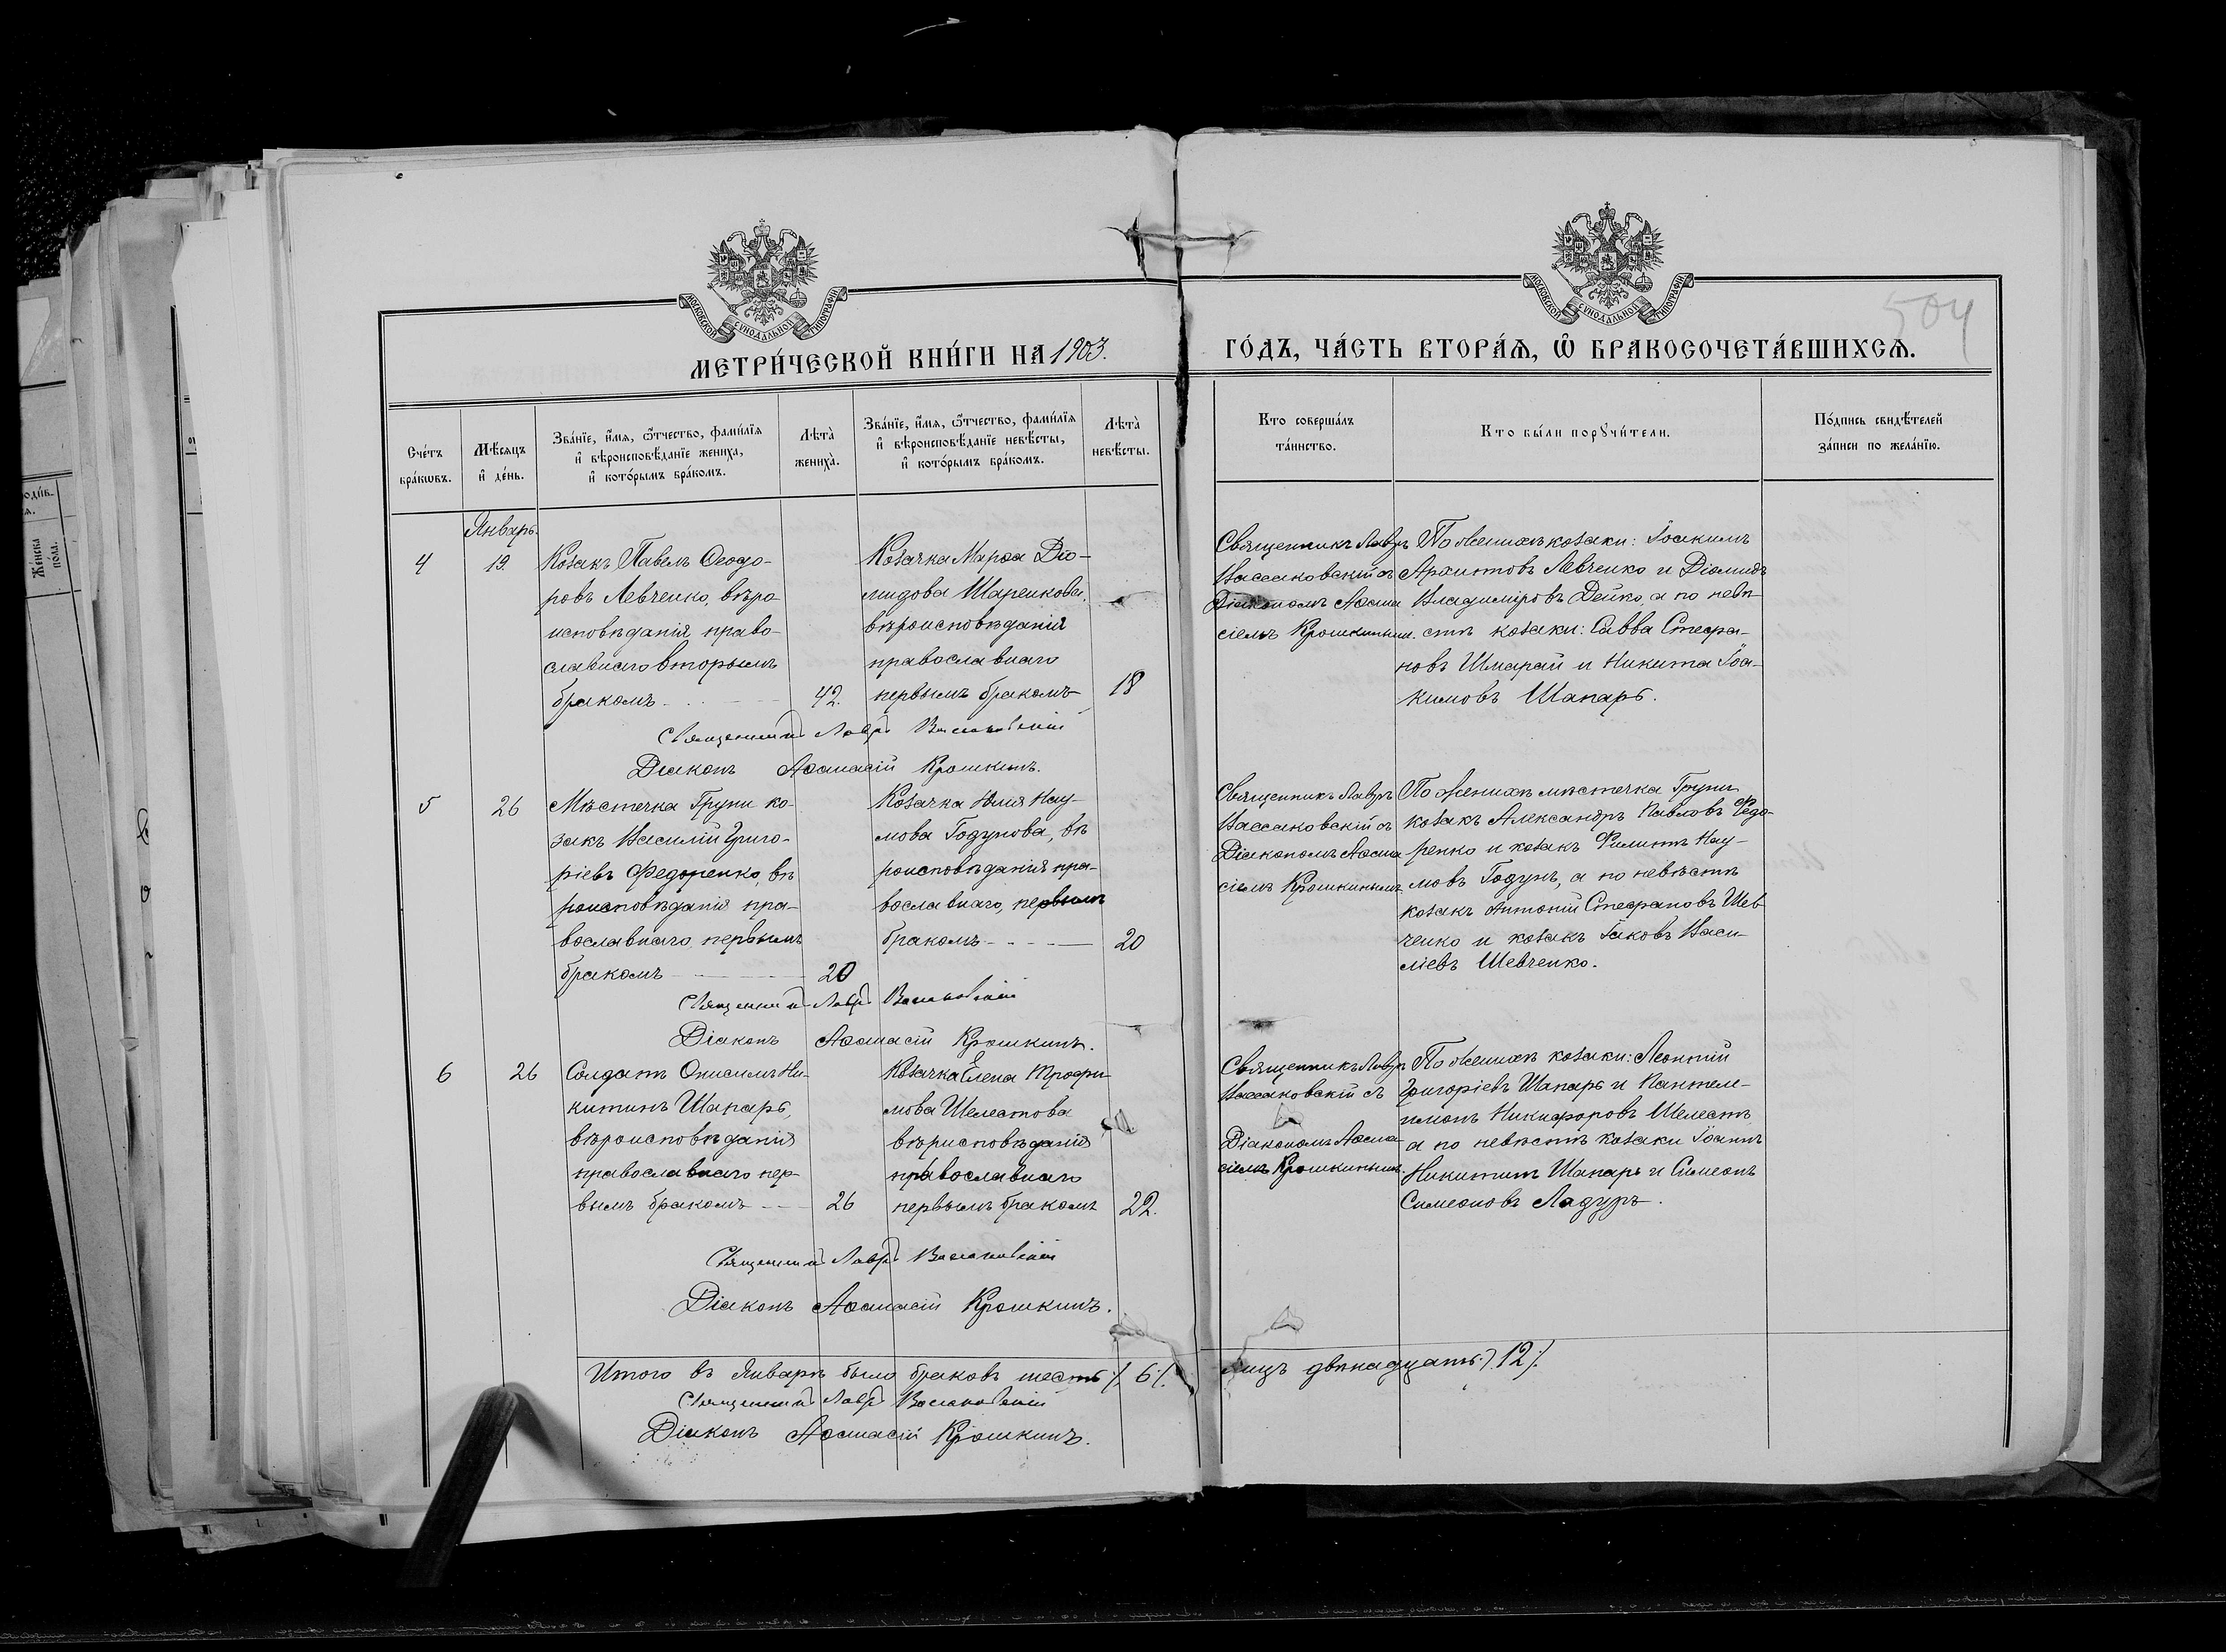 504
МОСКОВСКОЙ СѴНОДАЛЬНОЙ ТИПОГРАФІИ
МОСКОВСКОЙ СѴНОДАЛЬНОЙ ТИПОГРАФІИ
МЕТРИ́ЧЕСКОЙ КНИ́ГИ НА 1903.
ГО́ДЪ, ЧА́СТЬ ВТОРА́Ѧ, Ѽ БРАКОСОЧЕТА́ВШИХСѦ.
Сче́тъ
бра́кѡвъ.
Мѣ́сѧцъ
и҆ де́нь.
Зва́нїе, и҆́мѧ, ѻ҆́тчество, фами́лїѧ
и҆ вѣроисповѣ́данїе жениха̀,
и҆ кото́рымъ бра́комъ.
Лѣта̀
жениха̀.
Зва́нїе, и҆́мѧ, ѻ҆́тчество, фами́лїѧ
и҆ вѣроисповѣ́данїе невѣ́сты,
и҆ кото́рымъ бра́комъ.
Лѣта̀
невѣ́сты.
Кто соверша́лъ
та́инство.
Кто бы́ли порꙋчи́тели.
По́дпись свидѣ́телей
за́писи по жела́нїю.
Январь.
4
19.
Козакъ Павелъ Ѳеодо-
ровъ Левченко, вѣро
исповѣданія право-
славнаго вторымъ
бракомъ
42.
Козачка Марѳа Діо-
мидова Шаренкова,
вѣроисповѣданія
православнаго
первымъ бракомъ
18
Священникъ Лавръ
Васильковскій съ
Діакономъ Аѳана
сіемъ Крошкинымъ.
По женихѣ козаки: Іоакимъ
Архиповъ Левченко и Діомидъ
Владиміровъ Дейко, а по невѣ-
стѣ козаки: Савва Стефа-
новъ Шмарай и Никита Іоа-
кимовъ Шапарь.
Священникъ Лавръ Васильковскій
Діаконъ Аѳанасій Крошкинъ.
5
26
Мѣстечка Груни ко-
закъ Василій Григо-
ріевъ Федоренко, вѣ
роисповѣданія пра-
вославнаго, первымъ
бракомъ
20
Козачка Юлія Нау-
мова Годунова, вѣ
роисповѣданія пра-
вославнаго, первымъ
бракомъ
20
Священникъ Лавръ
Васильковскій съ
Діакономъ Аѳана
сіемъ Крошкинымъ.
По женихѣ мѣстечка Груни
козакъ Александръ Павловъ Федо-
ренко и козакъ Филиппъ Нау-
мовъ Годунъ, а по невѣстѣ
козакъ Антоній Стефановъ Шев
ченко и козакъ Іаковъ Васи-
ліевъ Шевченко.
Священникъ Лавръ Васильковскій
Діаконъ Аѳанасій Крошкинъ.
6
26
Солдатъ Онисимъ Ни-
китинъ Шапарь,
вѣроисповѣданія
православнаго пер-
вымъ бракомъ
26
Козачка Елена Трофи
мова Шелестова
вѣрисповѣданія
православнаго
первымъ бракомъ
22.
Священникъ Лавръ
Васильковскій съ
Діакономъ Аѳана-
сіемъ Крошкинымъ.
По женихѣ козаки: Леонтій
Григоріевъ Шапарь и Пантеле-
имонъ Никифоровъ Шелестъ
а по невѣстѣ козаки Іоаннъ
Никитинъ Шапарь и Симеонъ
Симеоновъ Ладуръ.
Священникъ Лавръ Васильковскій
Діаконъ Аѳанасій Крошкинъ.
Итого въ Январѣ было браковъ шесть ./. 6 ./. лицъ двѣнадцать ./. 12 ./.
Священникъ Лавръ Васильковскій
Діаконъ Аѳанасій Крошкинъ.
Же́нска
по́ла.